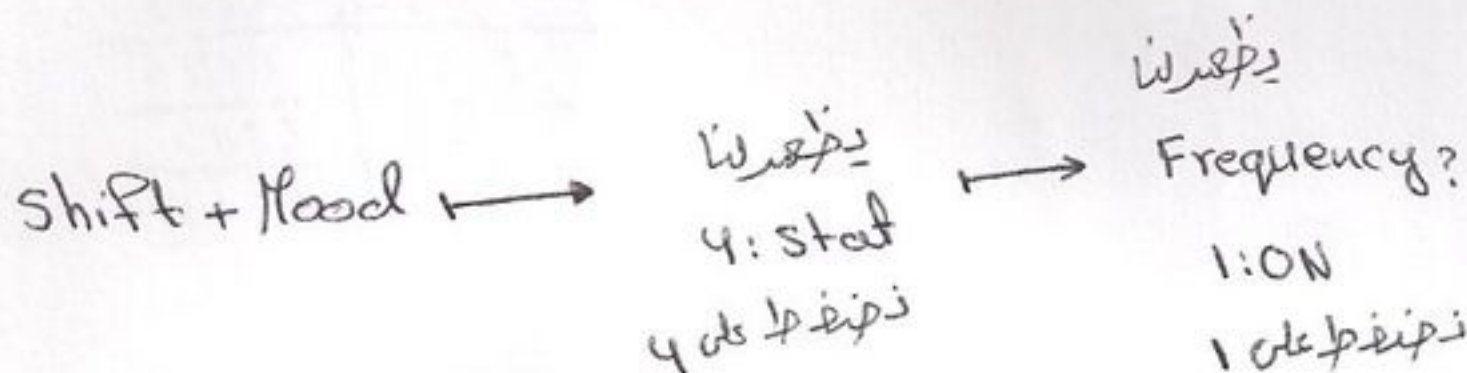 Shift + Mood ⟼ يظهر لنا
4: stat
نضغط على 4
⟼ يظهر لنا
Frequency?
1: ON
نضغط على 1